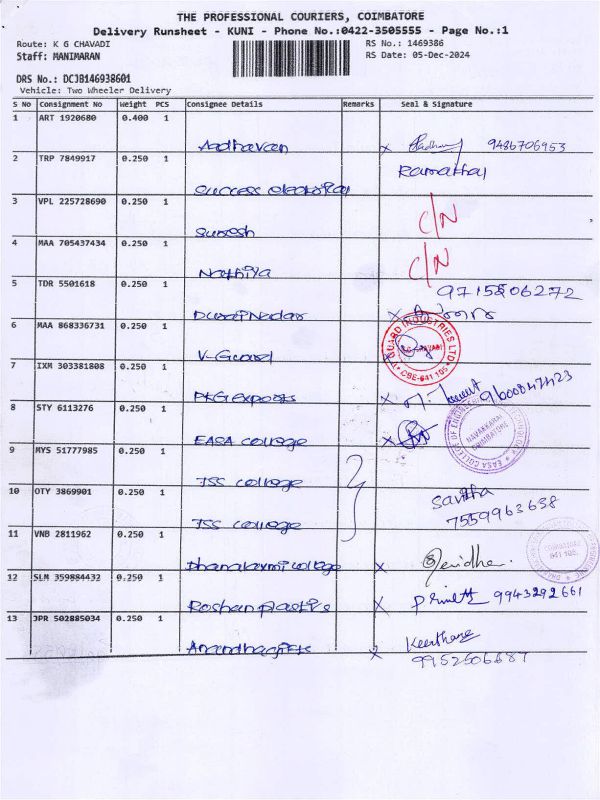 THE PROFESSIONAL COURIERS, COIMBATORE
Delivery Runsheet - KUNI - Phone No.:0422-3505555 - Page No.:1
Route: K G CHAVADI RS No.: 1469386
Staff: MANIMARAN RS Date: 05-Dec-2024
DRS No.: DCJB146938601
Vehicle: Two Wheeler Delivery
S No Consignment No Weight PCS Consignee Details Remarks Seal & Signature
1 ART 1920680 0.400 1
Aadhavan x 9486706953
2 TRP 7849917 0.250 1 Ramathal
success electrical
3 VPL 225728690 0.250 1 C/N
Suresh
4 MAA 705437434 0.250 1 C/N
Nathiya
5 TDR 5501618 0.250 1 9715506272
Durai Nadar x
6 MAA 868336731 0.250 1
V-Guard GUARD INDUSTRIES LTD CBE-641 105
7 IXM 303381808 0.250 1
PKG exports x 9600847423
8 STY 6113276 0.250 1
EASA college x EASA COLLEGE OF ENGINEERING NAVAKKARAI COIMBATORE
9 MYS 51777985 0.250 1
JSS college
10 OTY 3869901 0.250 1 Savitha
JSS college 7559963638
11 VNB 2811962 0.250 1
Dhanalaxmi college x COIMBATORE 641 105
12 SLM 359884432 0.250 1
Roshan plastis x 9943292661
13 JPR 502885034 0.250 1 Keerthana
Anandhagifts x 9952606687